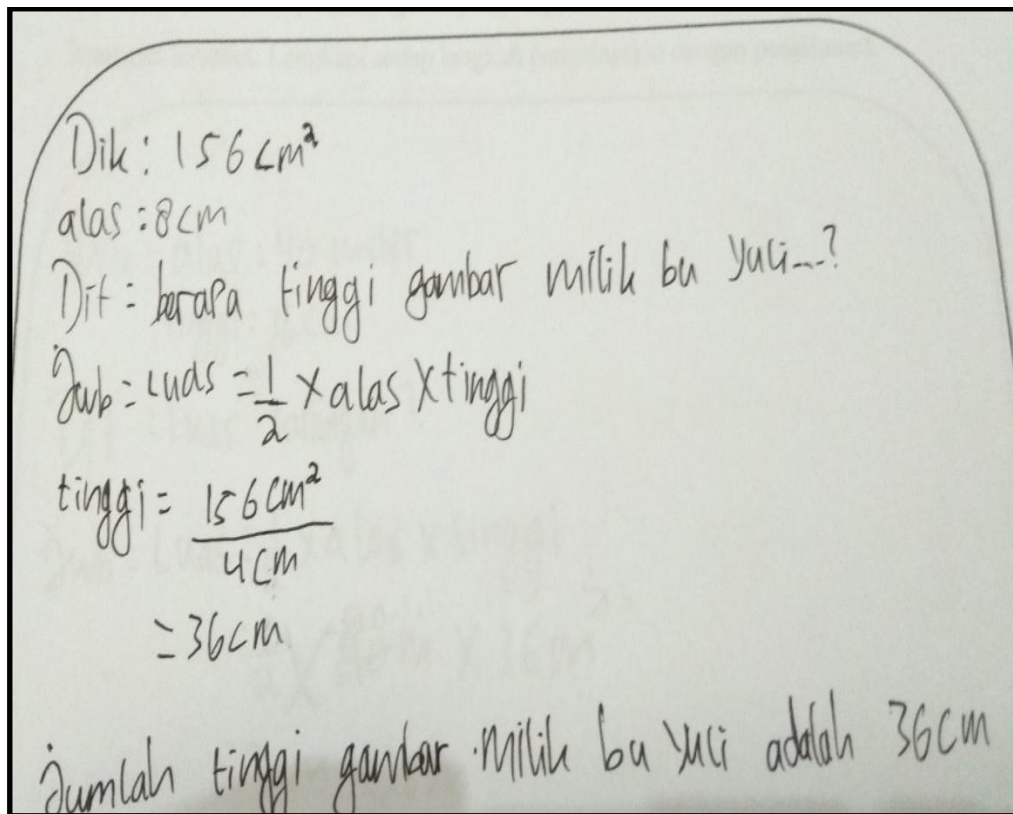 Dik: 156 cm²
alas : 8 cm
Dit = berapa tinggi gambar milik bu yuli...?
Jwb = Luas = 1/2 x alas x tinggi
tinggi = 156 cm² / 4 cm
= 36 cm
Jumlah tinggi gambar milik bu yuli adalah 36 cm